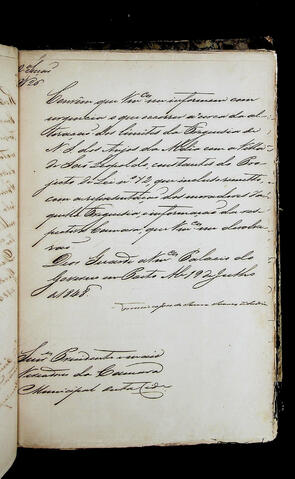 Convêm que Vm.ces me informem com
urgencia o que occorrer á cerca da al-
teração dos limites da Freguesia de
N. S. dos Anjos da Aldêa com a Villa
de São Leopoldo, constantes do Pro-
jecto de Lei nº 72, que incluso remetto,
com a representação dos moradores da-
quella Freguesia, e informação da res-
pectiva Camara, que Vm.ces me devolve-
rão.
Deos Guarde a Vm.ces Palacio do
Governo em Porto Al. 19 de Julho
de 1848.
Senr. Presidente e mais
Vereadores da Camara
Municipal desta Cid.e